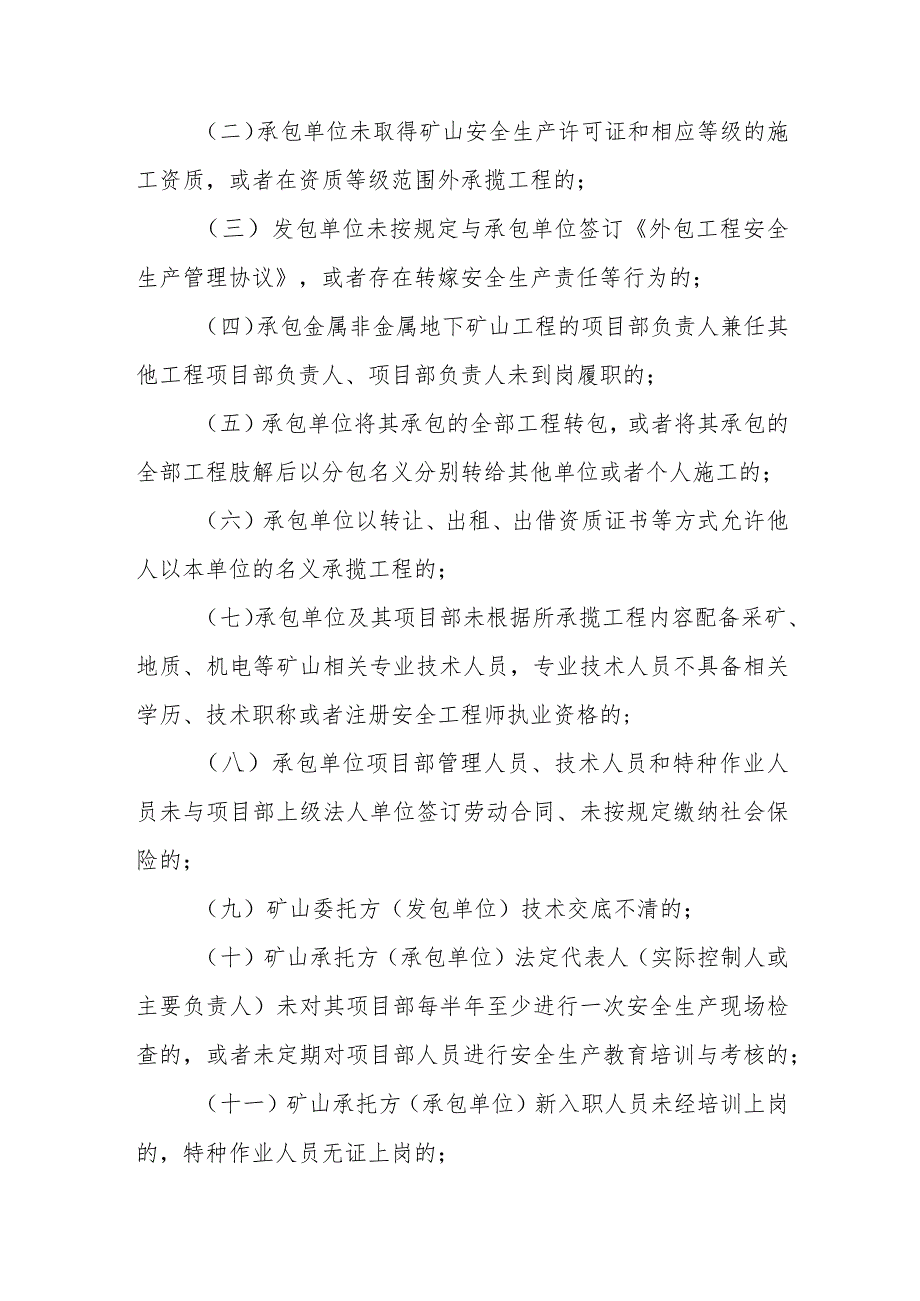 （二）承包单位未取得矿山安全生产许可证和相应等级的施
工资质，或者在资质等级范围外承揽工程的；
（三）发包单位未按规定与承包单位签订《外包工程安全
生产管理协议》，或者存在转嫁安全生产责任等行为的；
（四）承包金属非金属地下矿山工程的项目部负责人兼任其
他工程项目部负责人、项目部负责人未到岗履职的；
（五）承包单位将其承包的全部工程转包，或者将其承包的
全部工程肢解后以分包名义分别转给其他单位或者个人施工的；
（六）承包单位以转让、出租、出借资质证书等方式允许他
人以本单位的名义承揽工程的；
（七）承包单位及其项目部未根据所承揽工程内容配备采矿、
地质、机电等矿山相关专业技术人员，专业技术人员不具备相关
学历、技术职称或者注册安全工程师执业资格的；
（八）承包单位项目部管理人员、技术人员和特种作业人
员未与项目部上级法人单位签订劳动合同、未按规定缴纳社会保
险的；
（九）矿山委托方（发包单位）技术交底不清的；
（十）矿山承托方（承包单位）法定代表人（实际控制人或
主要负责人）未对其项目部每半年至少进行一次安全生产现场检
查的，或者未定期对项目部人员进行安全生产教育培训与考核的；
（十一）矿山承托方（承包单位）新入职人员未经培训上岗
的，特种作业人员无证上岗的；